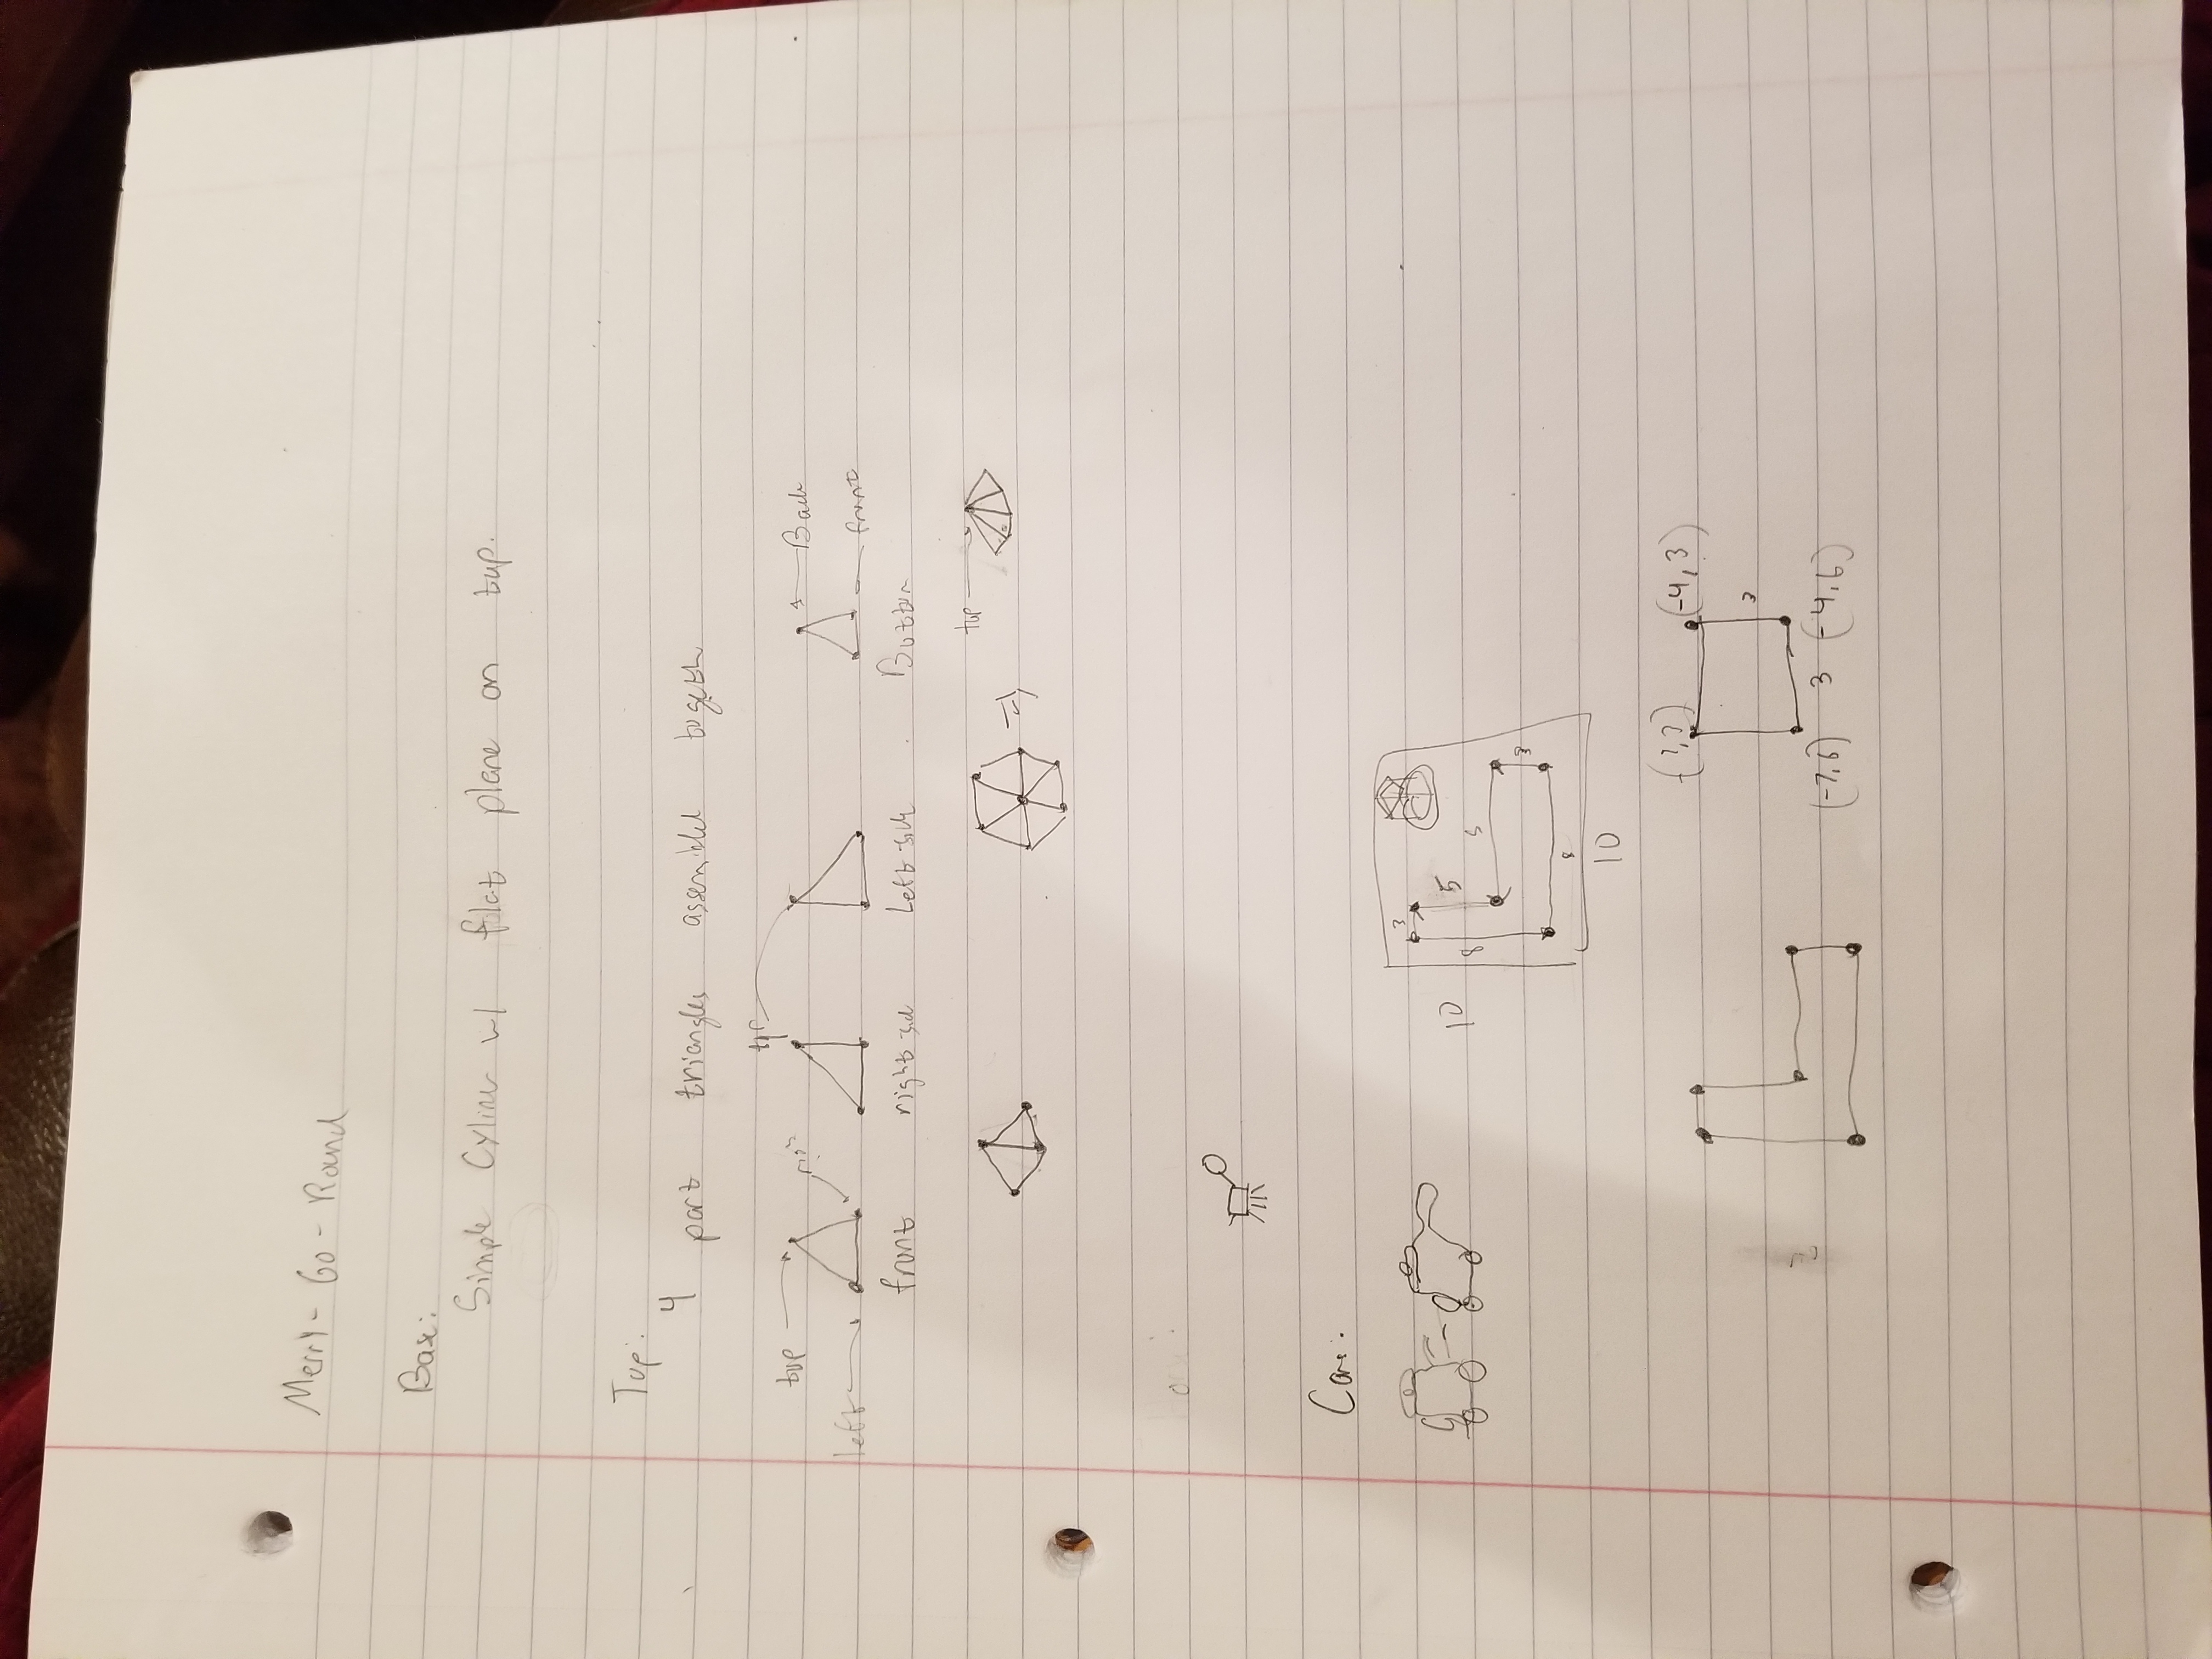 Merry-Go-Round
Base:
Simple Cyliner w/ flat plane on top.
Top:
4 part triangles assembled togeth
top
top
Back
left
front
front
right sid
Left side
Bottom
top
Car:
3
10
8
5
5
3
8
10
(-4, 3)
3
(-7, 6) 3 (-4, 6)